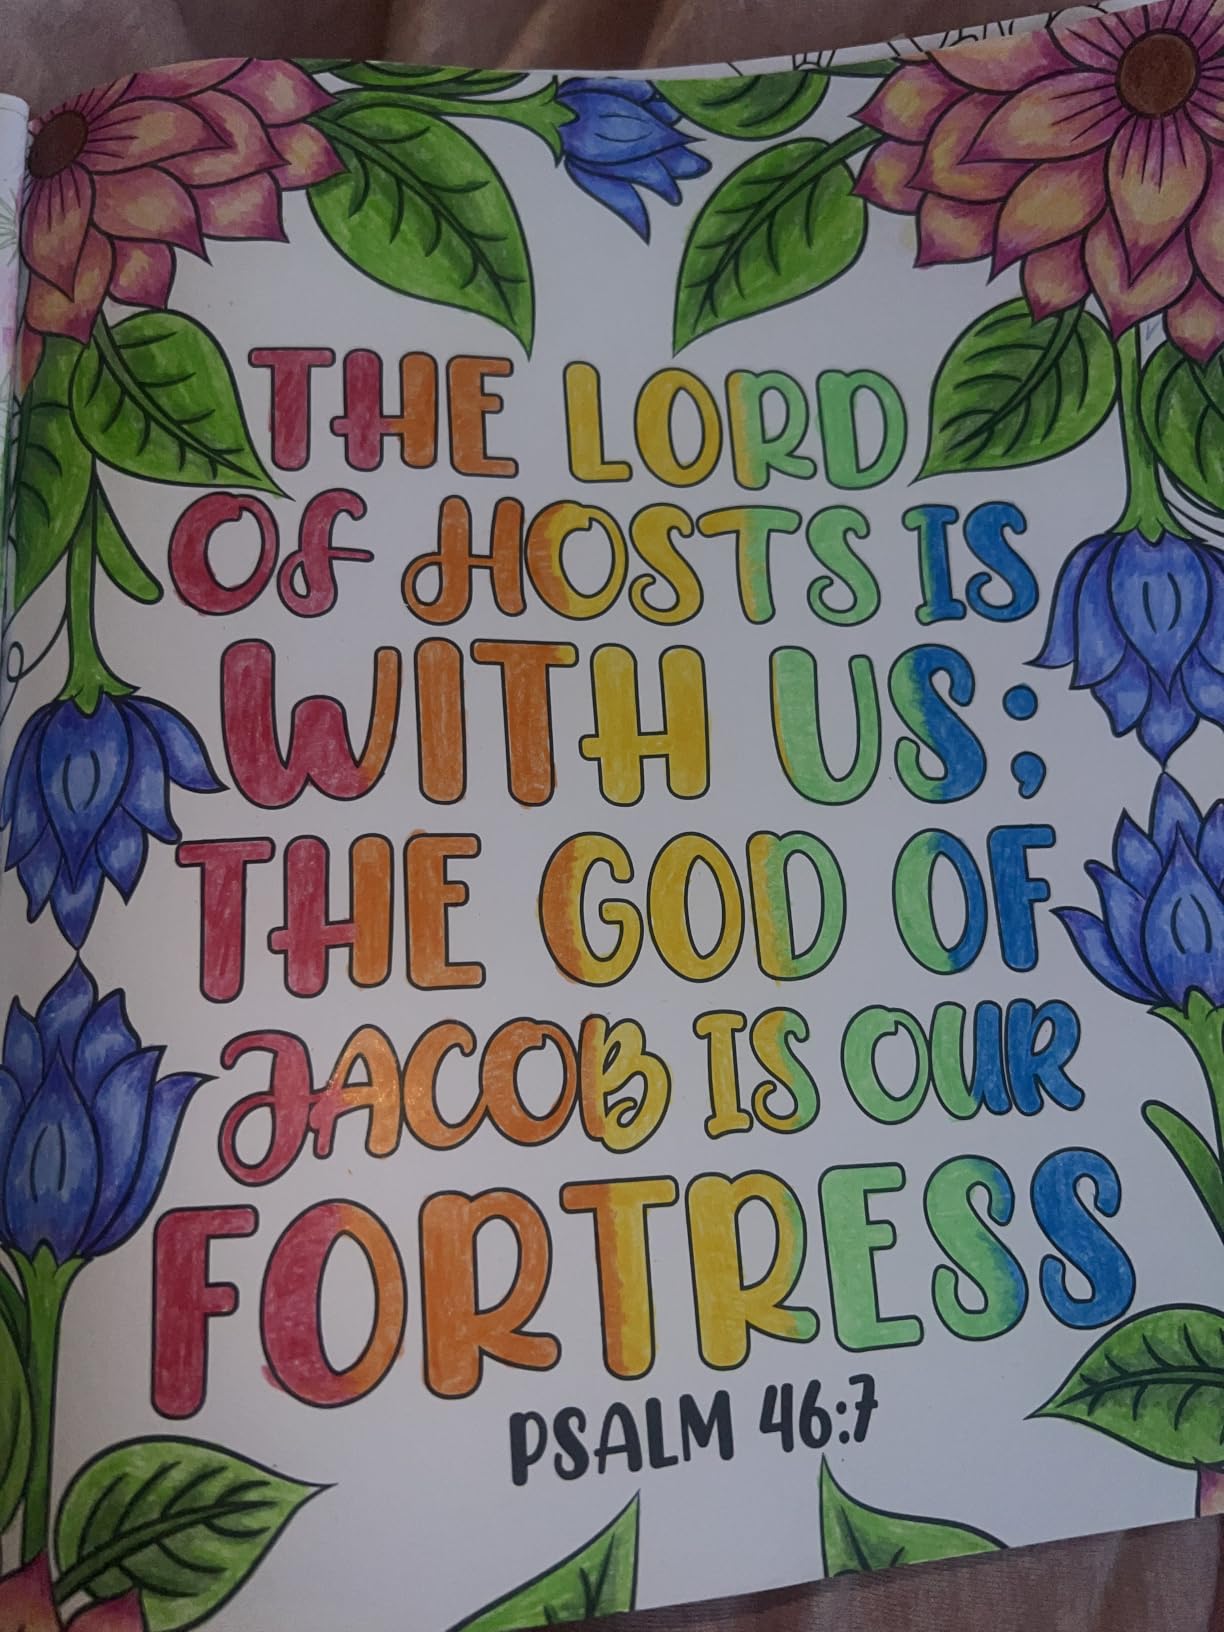 THE LORD
OF HOSTS IS
WITH US;
THE GOD OF
JACOB IS OUR
FORTRESS
PSALM 46:7